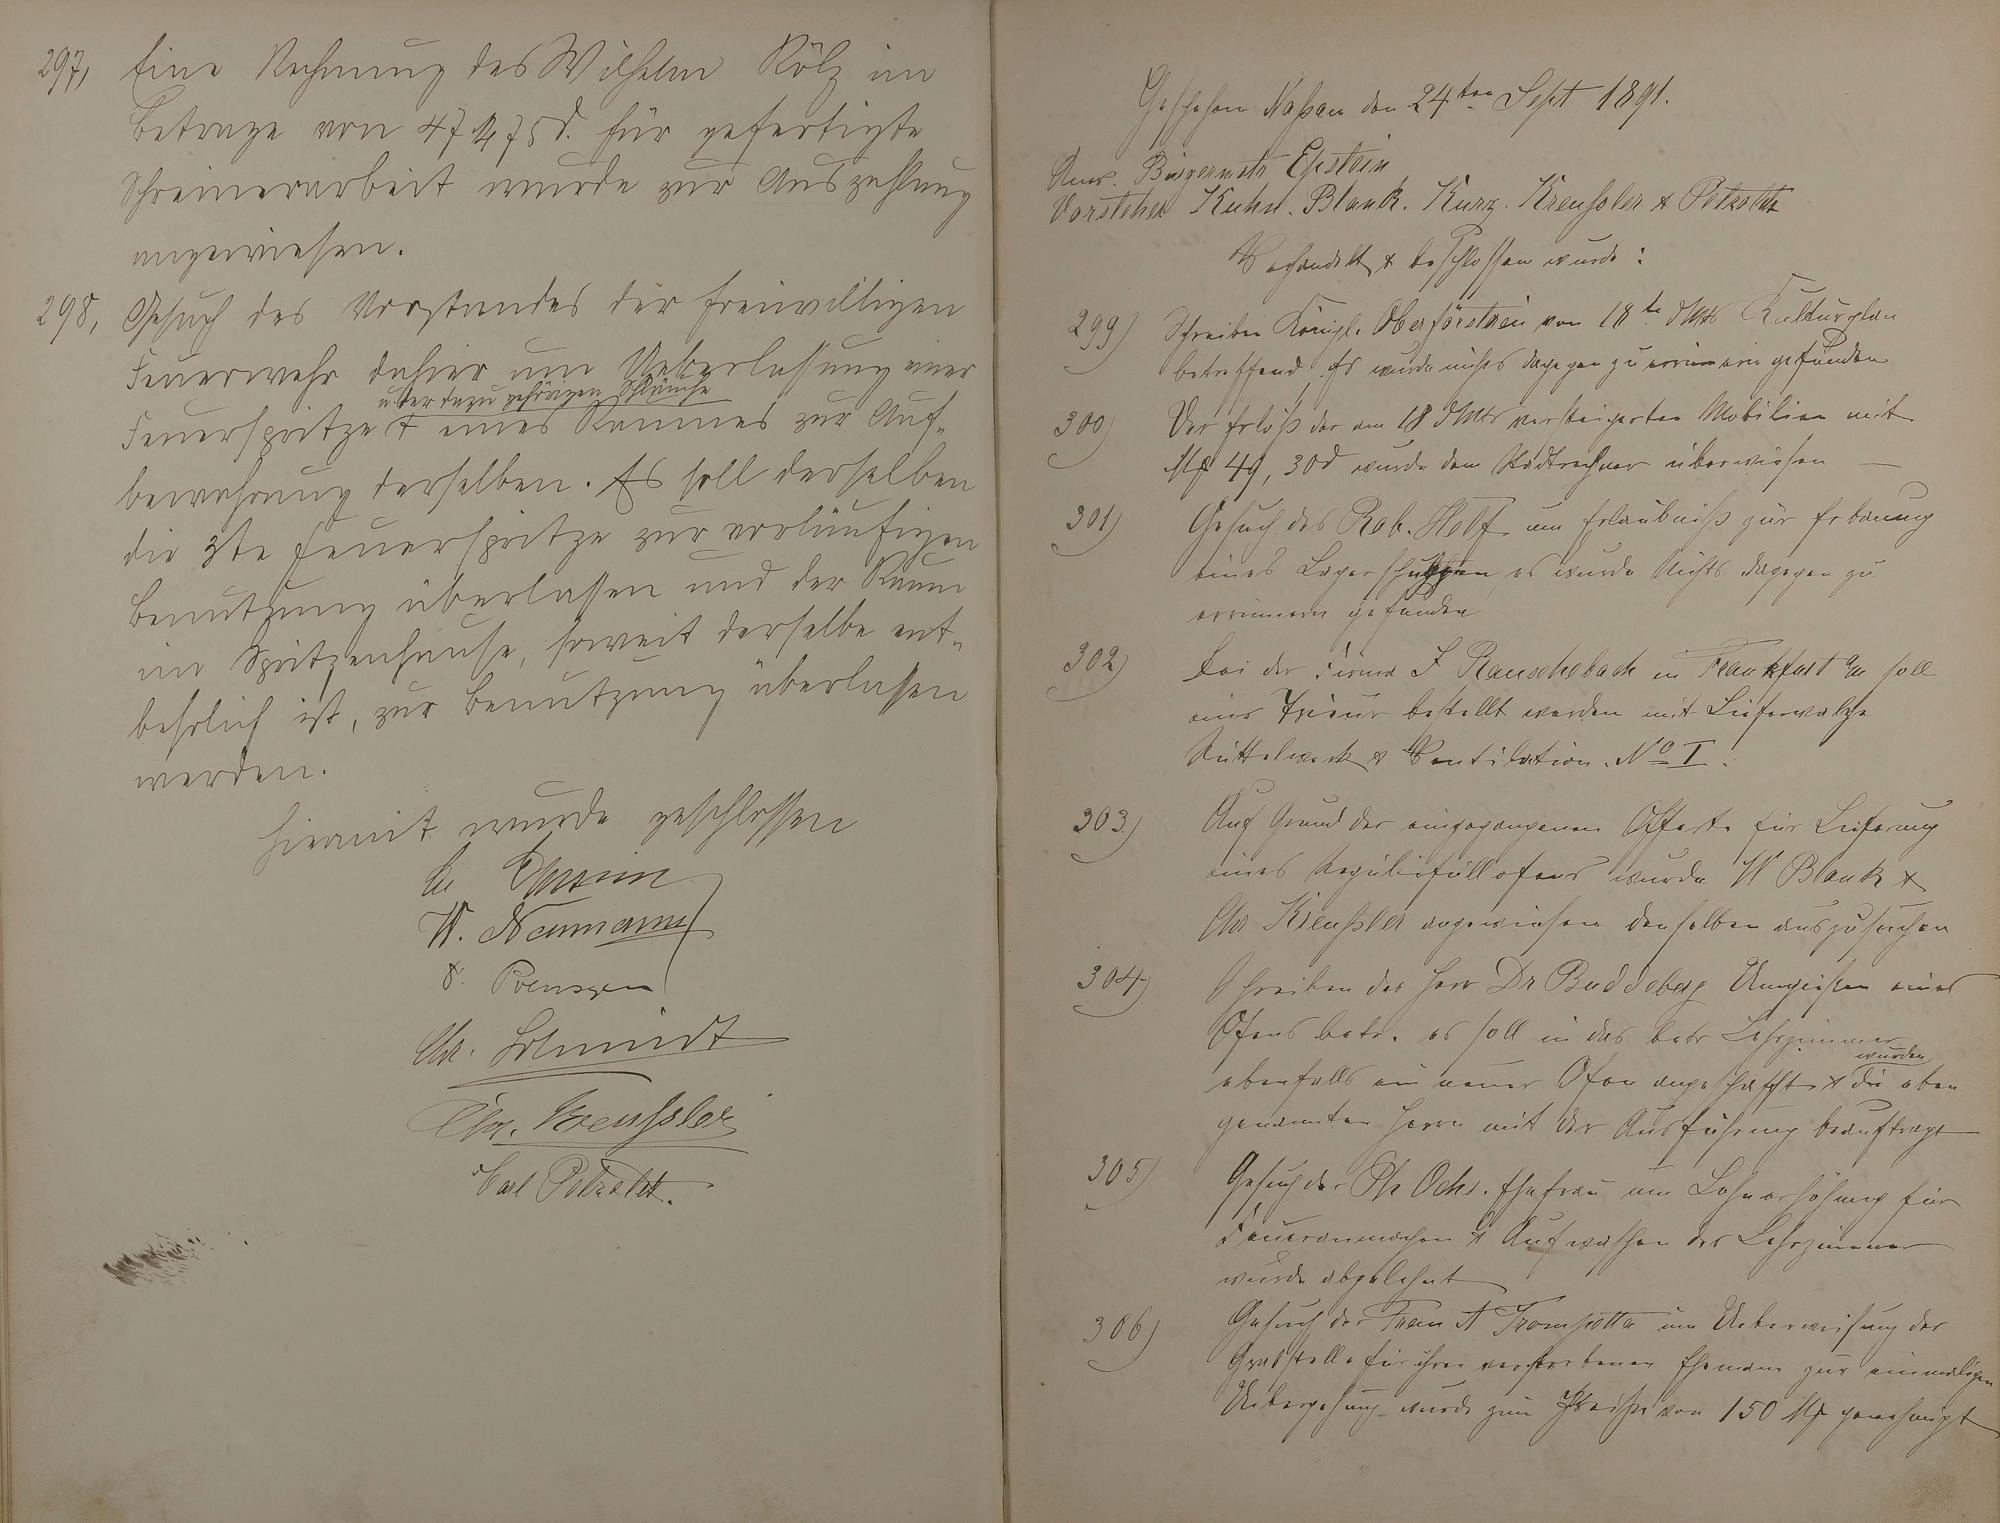 297, Eine Rechnung des Wilhelm Kölz im
Betrage von 47 M 75 d. für gefertigte
Schreinerarbeit wurde zur Auszahlung
angewiesen.
298, Gesuch des Vorstandes der freiwilligen
Feuerwehr dahier um Ueberlassung einer
u. der dazu gehörigen Schläuche
Feuerspritze + eines Raumes zur Auf-
bewahrung derselben. Es soll derselben
die 3te Feuerspritze zur vorläufigen
Benutzung überlassen und der Raum
im Spritzenhause, soweit derselbe ent-
behrlich ist, zur Benutzung überlassen
werden.
Hiermit wurde geschlossen
W. Neumann
Chr. Schmidt
Chr. Kreussler
Carl Petzoldt.
Geschehen Naßau den 24ten Sept 1891.
Anw. Bürgermstr Epstein
Vorsteher Kuhn. Blank. Kurz. Kreußler & Petzoldt
Behandelt & beschlossen wurde:
299) Schreiben Königl. Oberförsterei vom 18te d Mts Kulturplan
betreffend. Es wurde nichts dagegen zu erinnern gefunden
300) Der Erlöß der am 18 d Mts versteigerten Mobilien mit
M 49, 30 d wurde dem Stadtrechner überwiesen —
301) Gesuch des Rob. Helf um Erlaubniß zur Erbauung
eines Lagerschuppen, es wurde Nichts dagegen zu
erinnern gefunden
302) Bei der Firma J Rauschebach in Frankfurt a/m soll
eine Trieur bestellt werden mit Lieferwalze
Rüttelwerk & Ventilation. No I.
303) Auf Grund der eingegangenen Offerte für Lieferung
eines Regulirfüllofens wurde W Blank &
Chr Kreußler angewiesen denselben auszusuchen
304) Schreiben des Herr Dr Buddeberg Umgießen eines
Ofens betr. es soll in das betr Lehrzimmer
wurden
ebenfalls ein neuer Ofen angeschafft & die oben
genannten Herrn mit der Ausführung beauftragt
305) Gesuch der Ph Ochs. Ehefrau um Lohnerhöhung für
Feueranmachen & Aufwaschen der Lehrzimmer
wurde abgelehnt
306) Gesuch der Frau A Trompetta um Ueberweisung der
Grabstelle für ihren verstorbenen Ehemann zur einmaligen
Uebergehung wurde zum Preiße von 150 M genehmigt